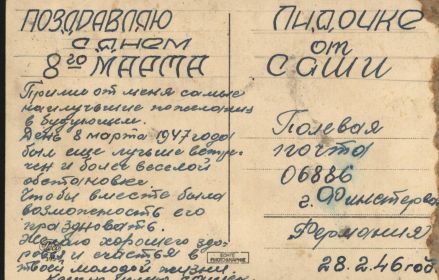 ПОЗДРАВЛЯЮ
С ДНЕМ
8го МАРТА
Прими от меня самые
наилучшие пожелания
в будующем.
День 8 марта 1947 года
был еще лучше встре-
чен и более веселой
обстановке.
Чтобы вместе была
возможность его
праздновать.
Желаю хорошего здо-
ровья и счастья в
твоей молодой жизни.
ЛИДОЧКЕ
от
САШИ
Полевая
почта
06886
г. Финстерва
Германия
28.2.46 год
ECHTE
PHOTOGRAPHIE